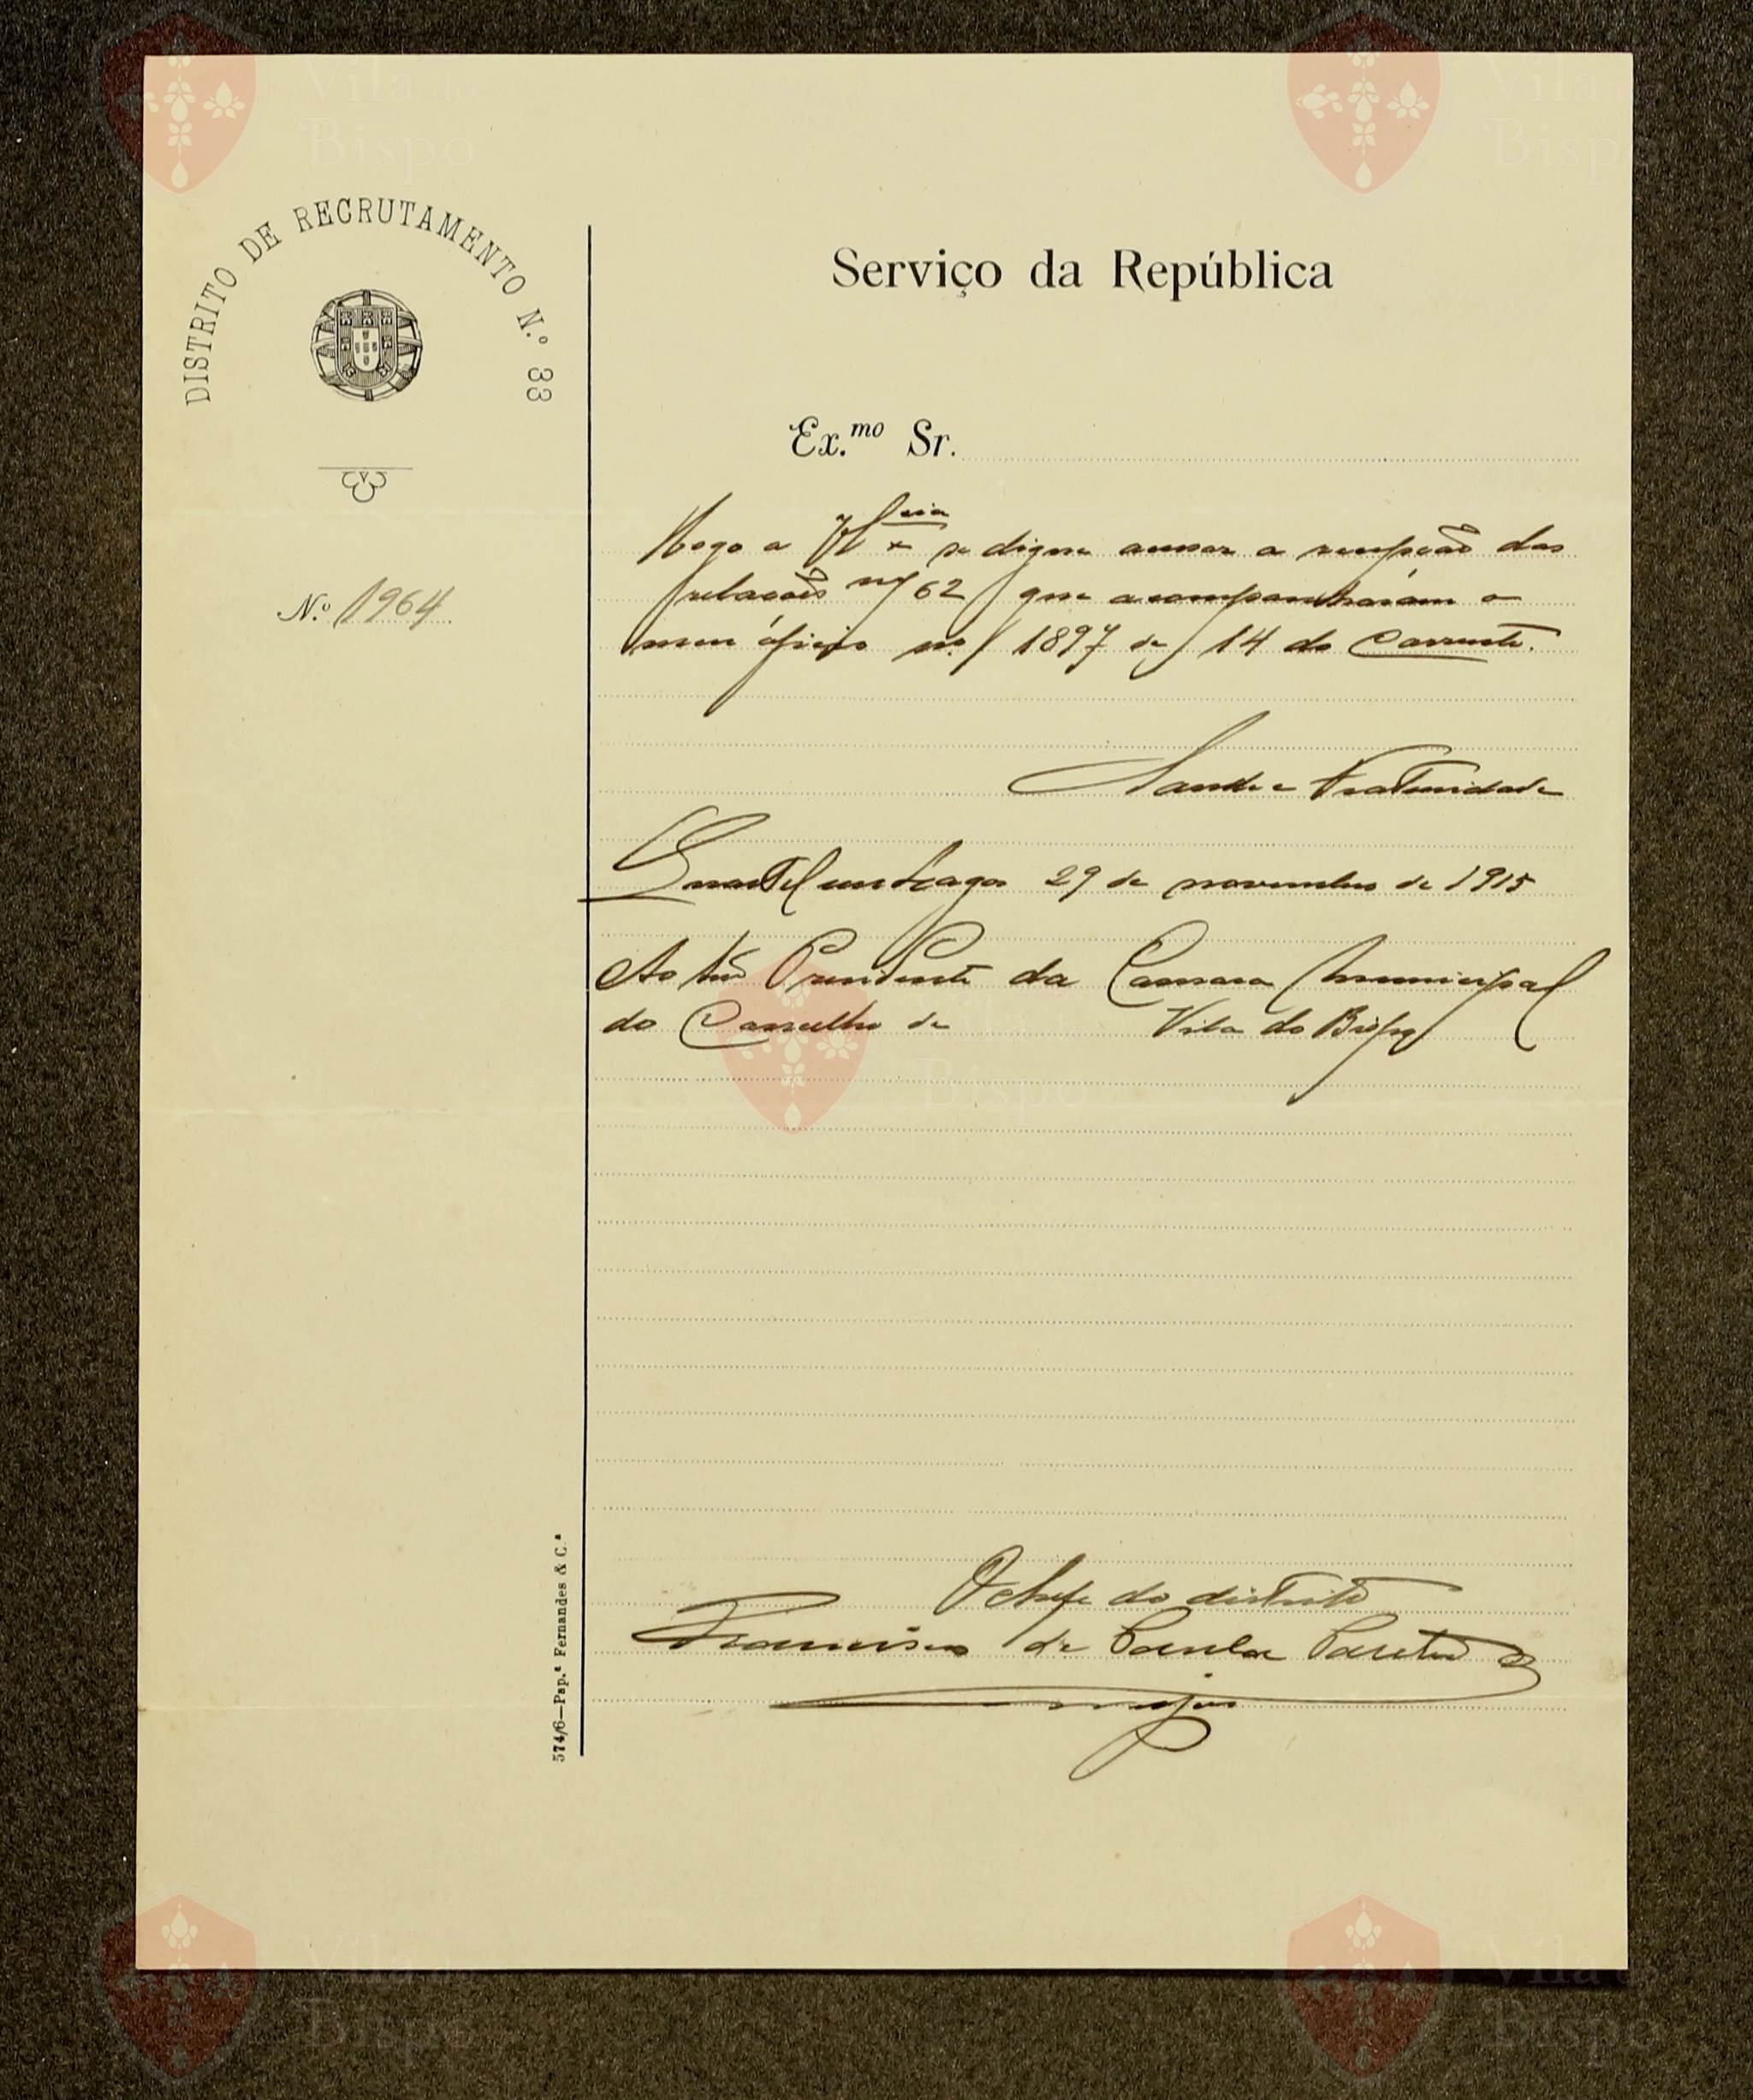 DISTRITO DE RECRUTAMENTO N.º 33
Nº 1964
Serviço da República
Ex.mo Sr.
Rogo a V. Ex.cia se digne acusar a recepção das
relações nº 62 que acompanharam o
meu ofício nº 1897 de 14 do corrente.
Saude e Fraternidade
Quartel em Lagos 29 de novembro de 1915
Ao Presidente da Camara Municipal
do Concelho de Vila do Bispo
O chefe do distrito
Francisco de Paula
major
574/6—Pap.ª Fernandes & C.ª
Vila do
Bispo